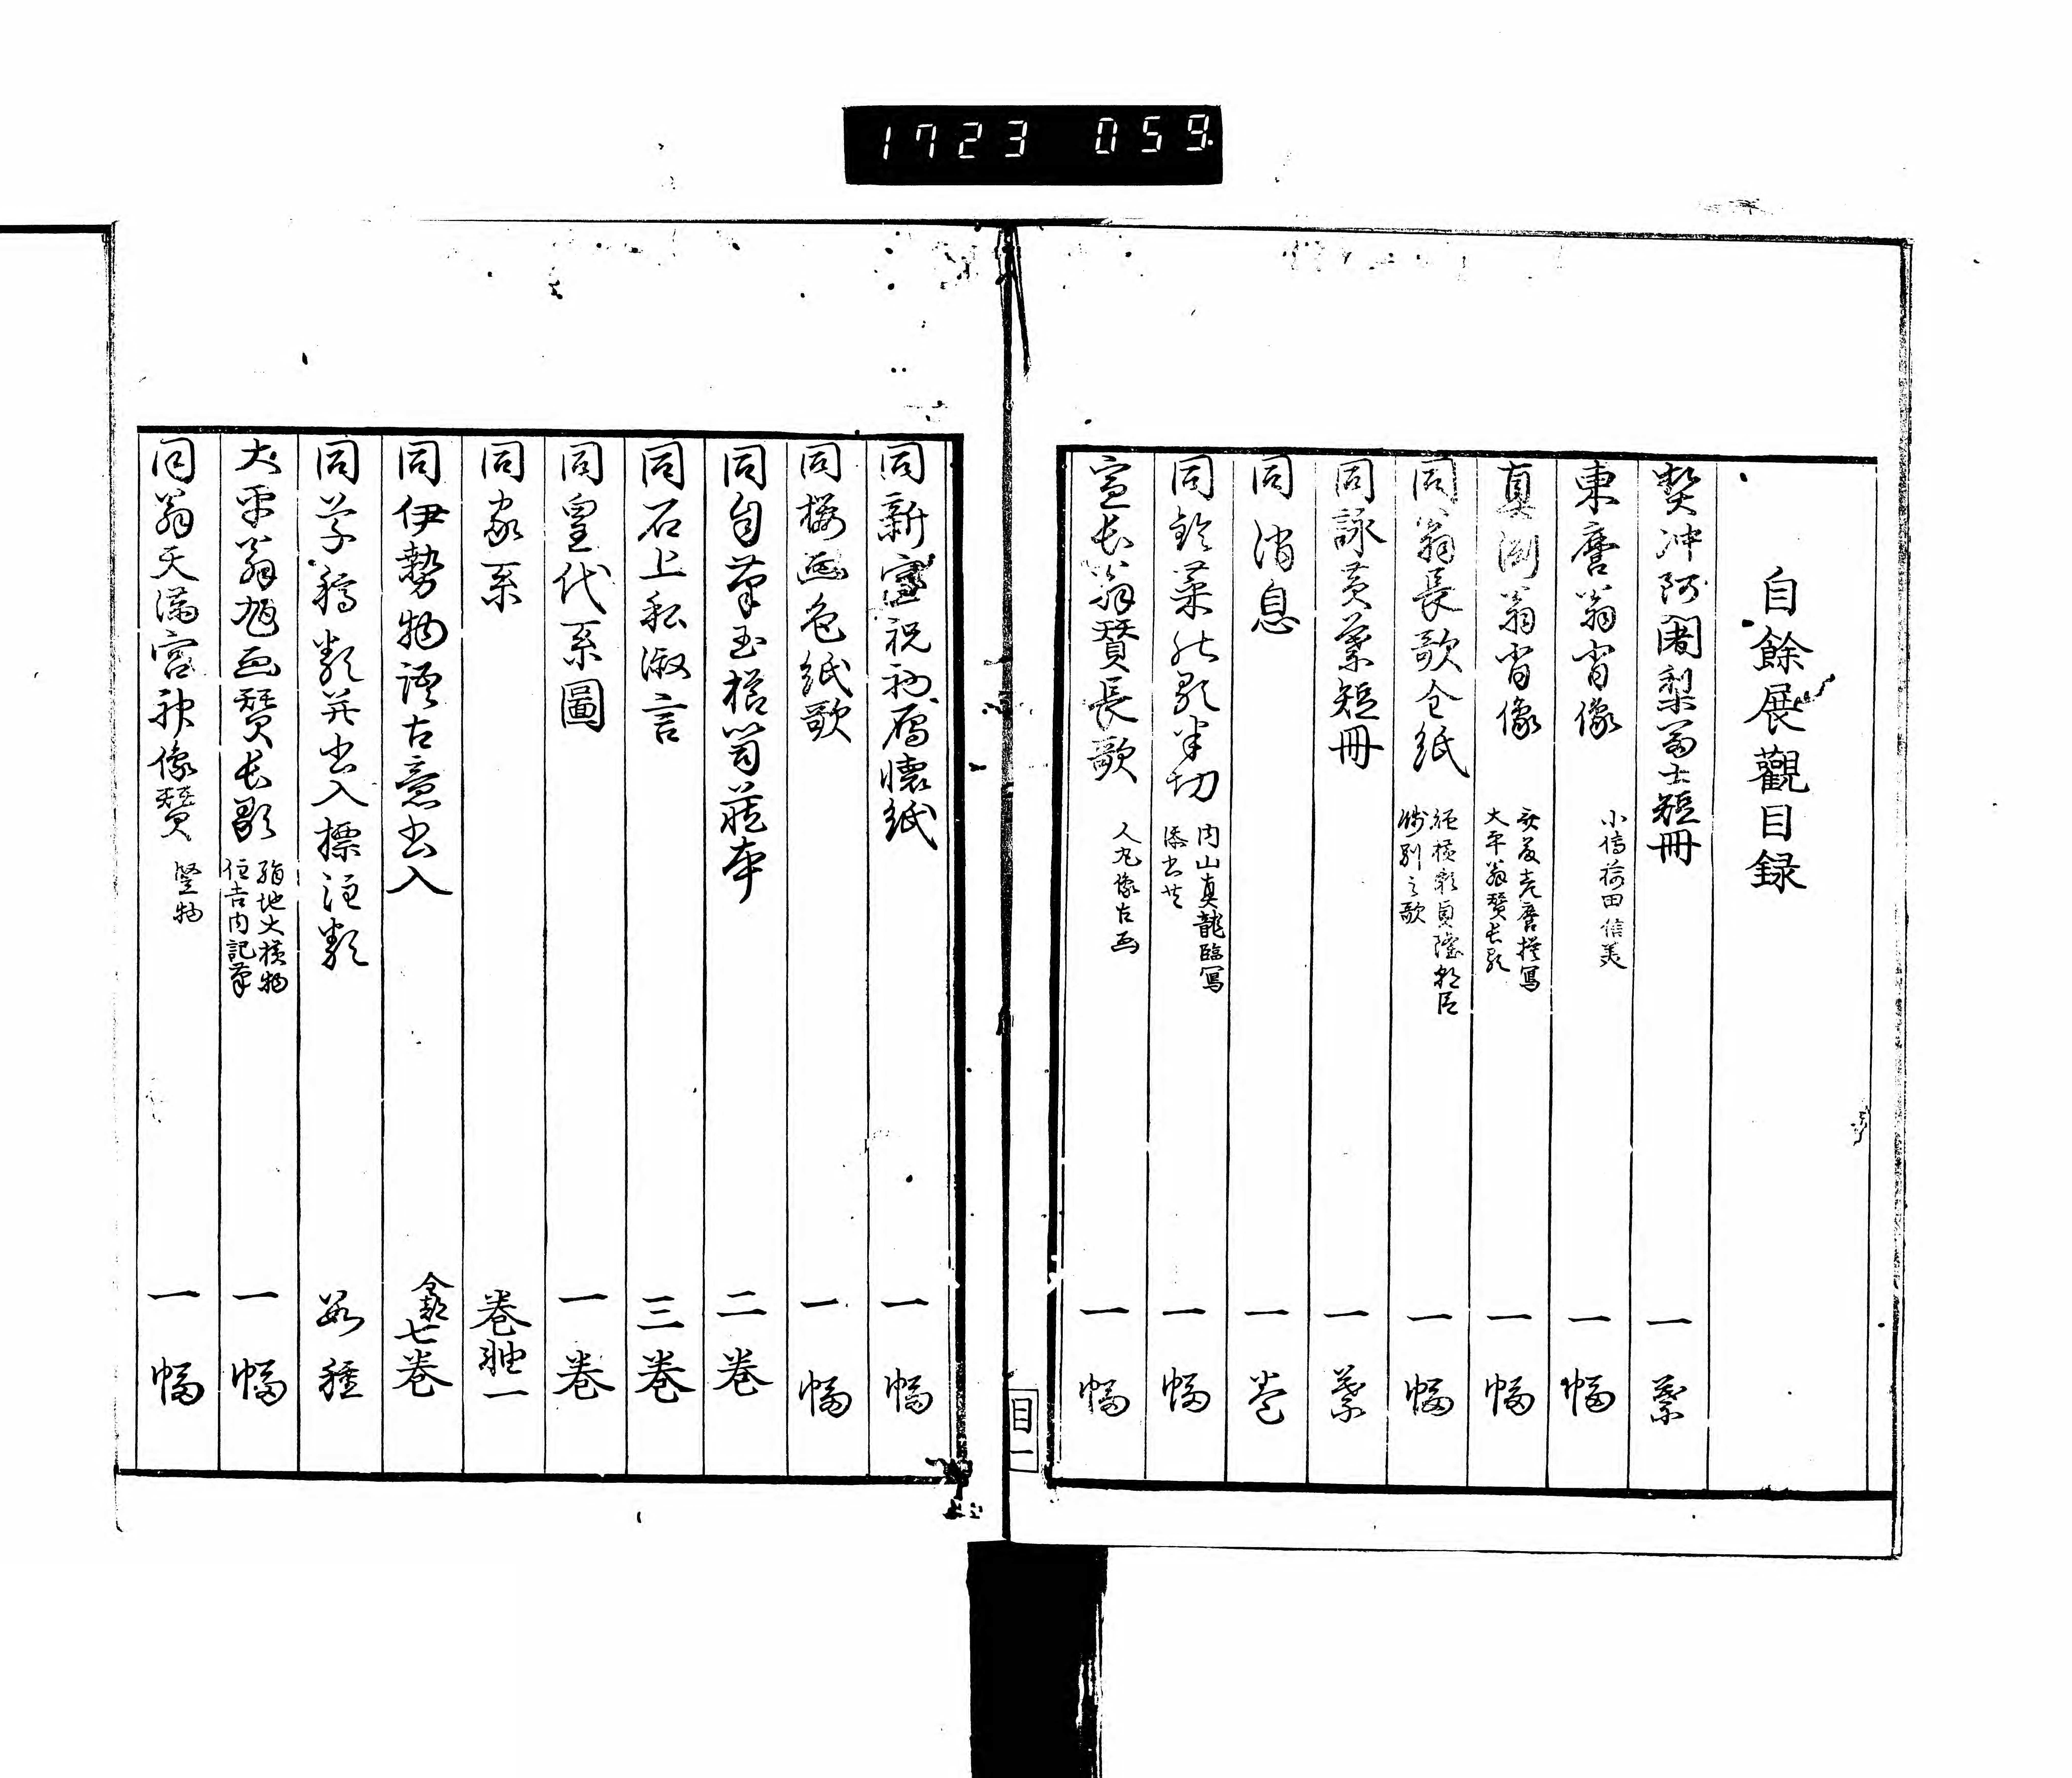 1723 059.
自餘展觀目録
契沖阿闍梨富士短冊 一葉
東麿翁肖像 小傳荷田信美 一幅
真渕翁肖像 大平翁賛長歌 一幅
同翁長歌全紙 餞別之歌 一幅
同詠黄葉短冊 一葉
同消息 一巻
同鈴菜歌半切 内山真龍臨冩 添書共 一幅
宣長翁賛長歌 人丸像古画 一幅
目一
同新室祝初雁懐紙 一幅
同桜画色紙歌 一幅
同自筆玉椙笥蔵本 二巻
同石上私淑言 三巻
同皇代系圖 一巻
同家系 巻軸一
同伊勢物語古意書入 全部七巻
同草稿類并書入標注類 数種
大平翁旭画賛長歌 絹地大横物 住吉内記筆 一幅
同翁天満宮神像賛 竪物 一幅